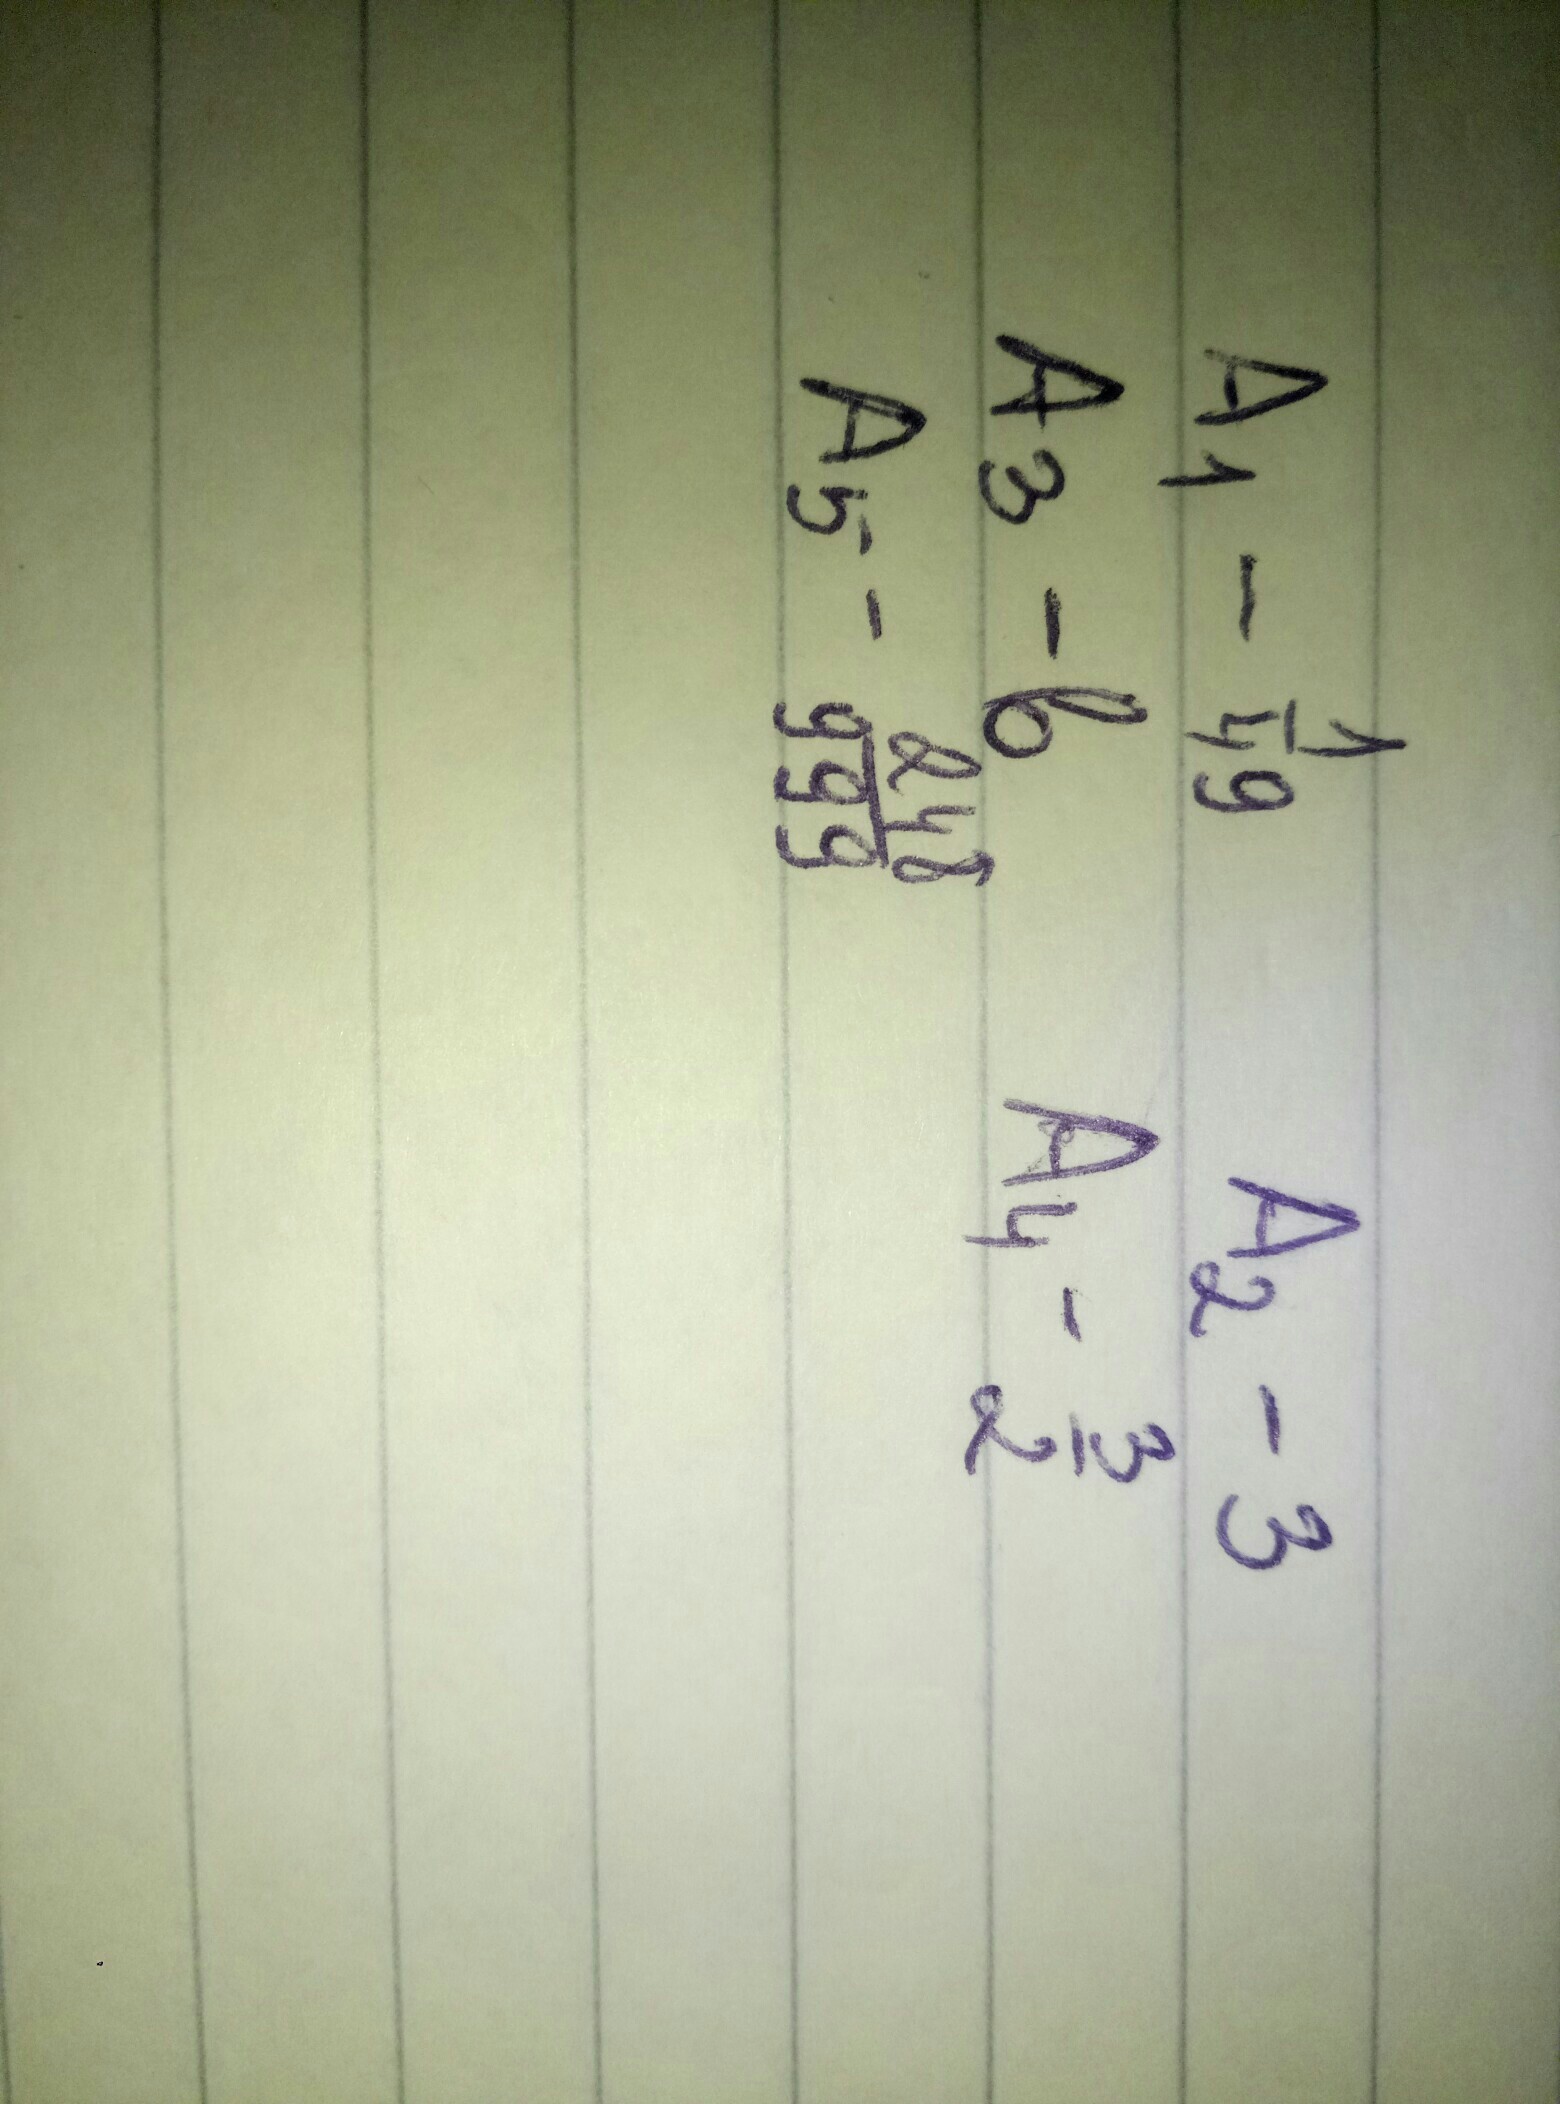 A1 - 1/49 A2 - 3
A3 - 6 A4 - 3/2
A5 - 248/999